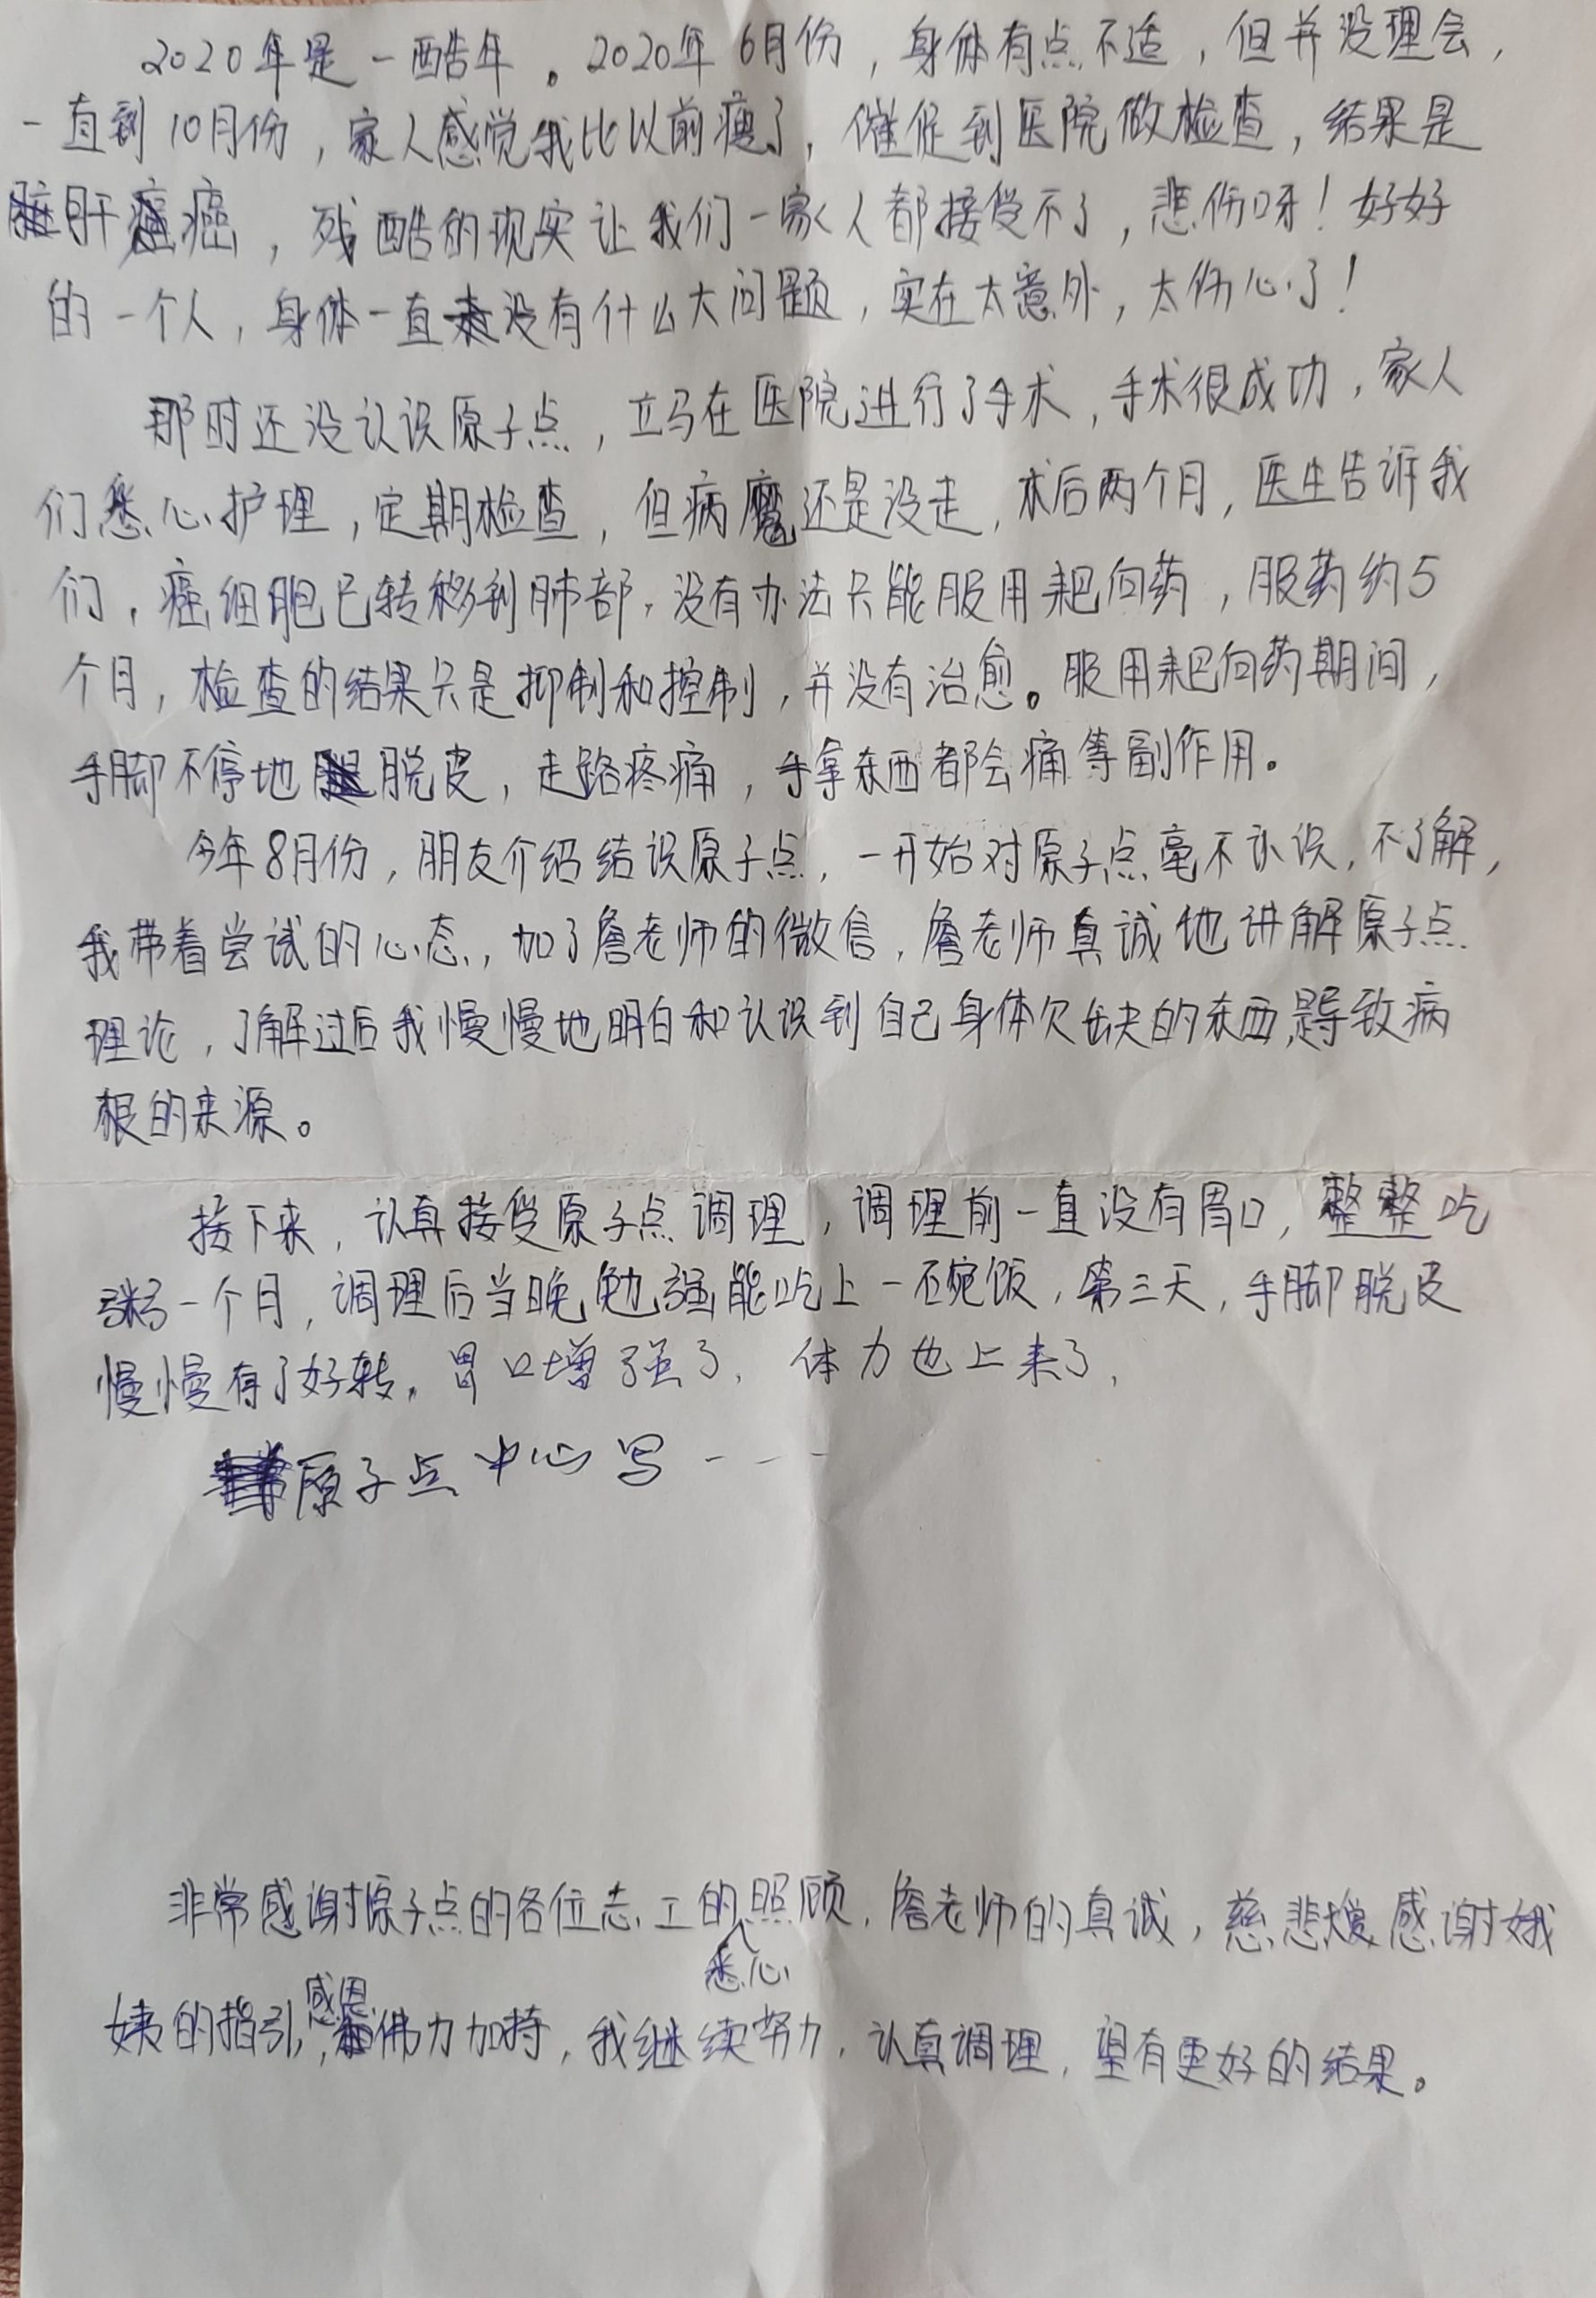 2020年是一酷年。2020年6月份，身体有点不适，但并没理会，
一直到10月份，家人感觉我比以前瘦了，催促到医院做检查，结果是
肝癌，残酷的现实让我们一家人都接受不了，悲伤呀！好好
的一个人，身体一直没有什么大问题，实在太意外，太伤心了！
那时还没认识原子点，立马在医院进行了手术，手术很成功，家人
们悉心护理，定期检查，但病魔还是没走，术后两个月，医生告诉我
们，癌细胞已转移到肺部，没有办法只能服用耙向药，服药约5
个月，检查的结果只是抑制和控制，并没有治愈。服用耙向药期间，
手脚不停地脱皮，走路疼痛，手拿东西都会痛等副作用。
今年8月份，朋友介绍结识原子点，一开始对原子点毫不认识，不了解，
我带着尝试的心态，加了詹老师的微信，詹老师真诚地讲解原子点
理论，了解过后我慢慢地明白和认识到自己身体欠缺的东西，是导致病
根的来源。
接下来，认真接受原子点调理，调理前一直没有胃口，整整吃
粥一个月，调理后当晚勉强能吃上一碗饭，第三天，手脚脱皮
慢慢有了好转，胃口增强了，体力也上来了，
原子点中心写---
非常感谢原子点的各位志工的悉心照顾，詹老师的真诚，慈悲，感谢娥
姨的指引，感恩佛力加持，我继续努力，认真调理，望有更好的结果。